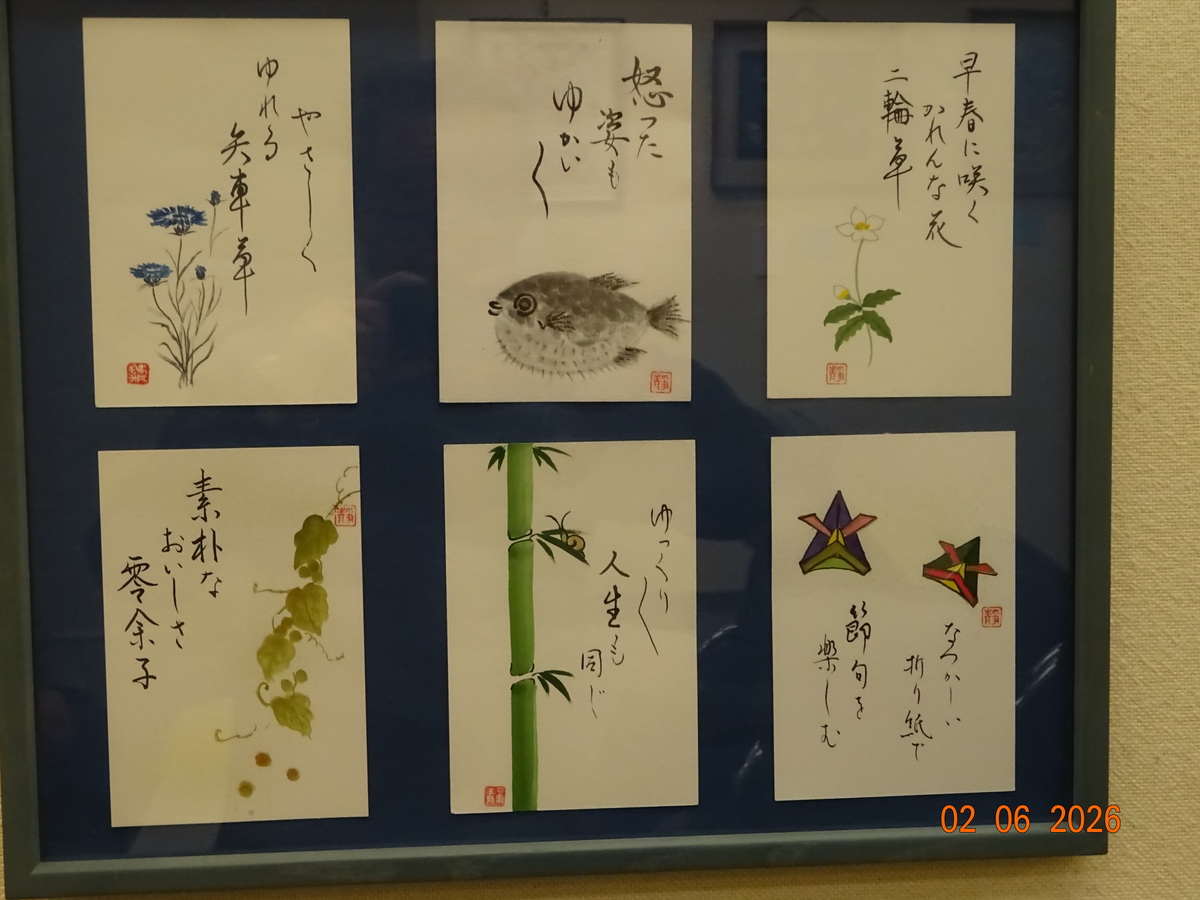 やさしく
ゆれる
矢車草
怒った
姿も
ゆかい〱
早春に咲く
かれんな花
二輪草
素朴な
おいしさ
零余子
ゆっくり〱
人生も
同じ
なつかしい
折り紙で
節句を
楽しむ
02 06 2026